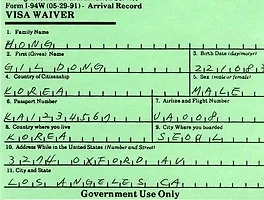 Form I-94W (05-29-91) - Arrival Record
VISA WAIVER
1. Family Name
HONG
2. First (Given) Name 3. Birth Date (day/mo/yr)
GIL DONG 22/08/
4. Country of Citizenship 5. Sex (male or female)
KOREA MALE
6. Passport Number 7. Airline and Flight Number
KA1234567 UA008
8. Country where you live 9. City Where you boarded
KOREA SEOUL
10. Address While in the United States (Number and Street)
327H OXFORD AV
11. City and State
LOS ANGELES, CA
Government Use Only